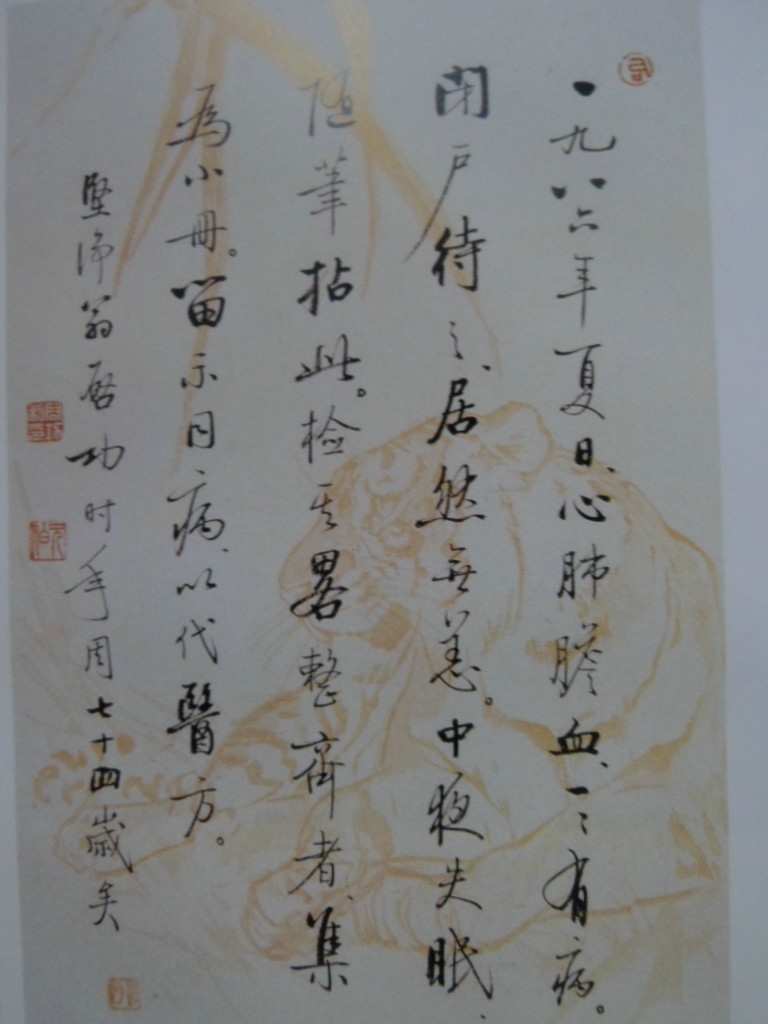 一九八六年夏日、心肺膽血、一々有病。
閉户待之、居然無恙。中夜失眠、
隨筆拈此。检其畧整齊者、集
為小冊。留示同病、以代醫方。
堅净翁启功时年周七十四歲矣